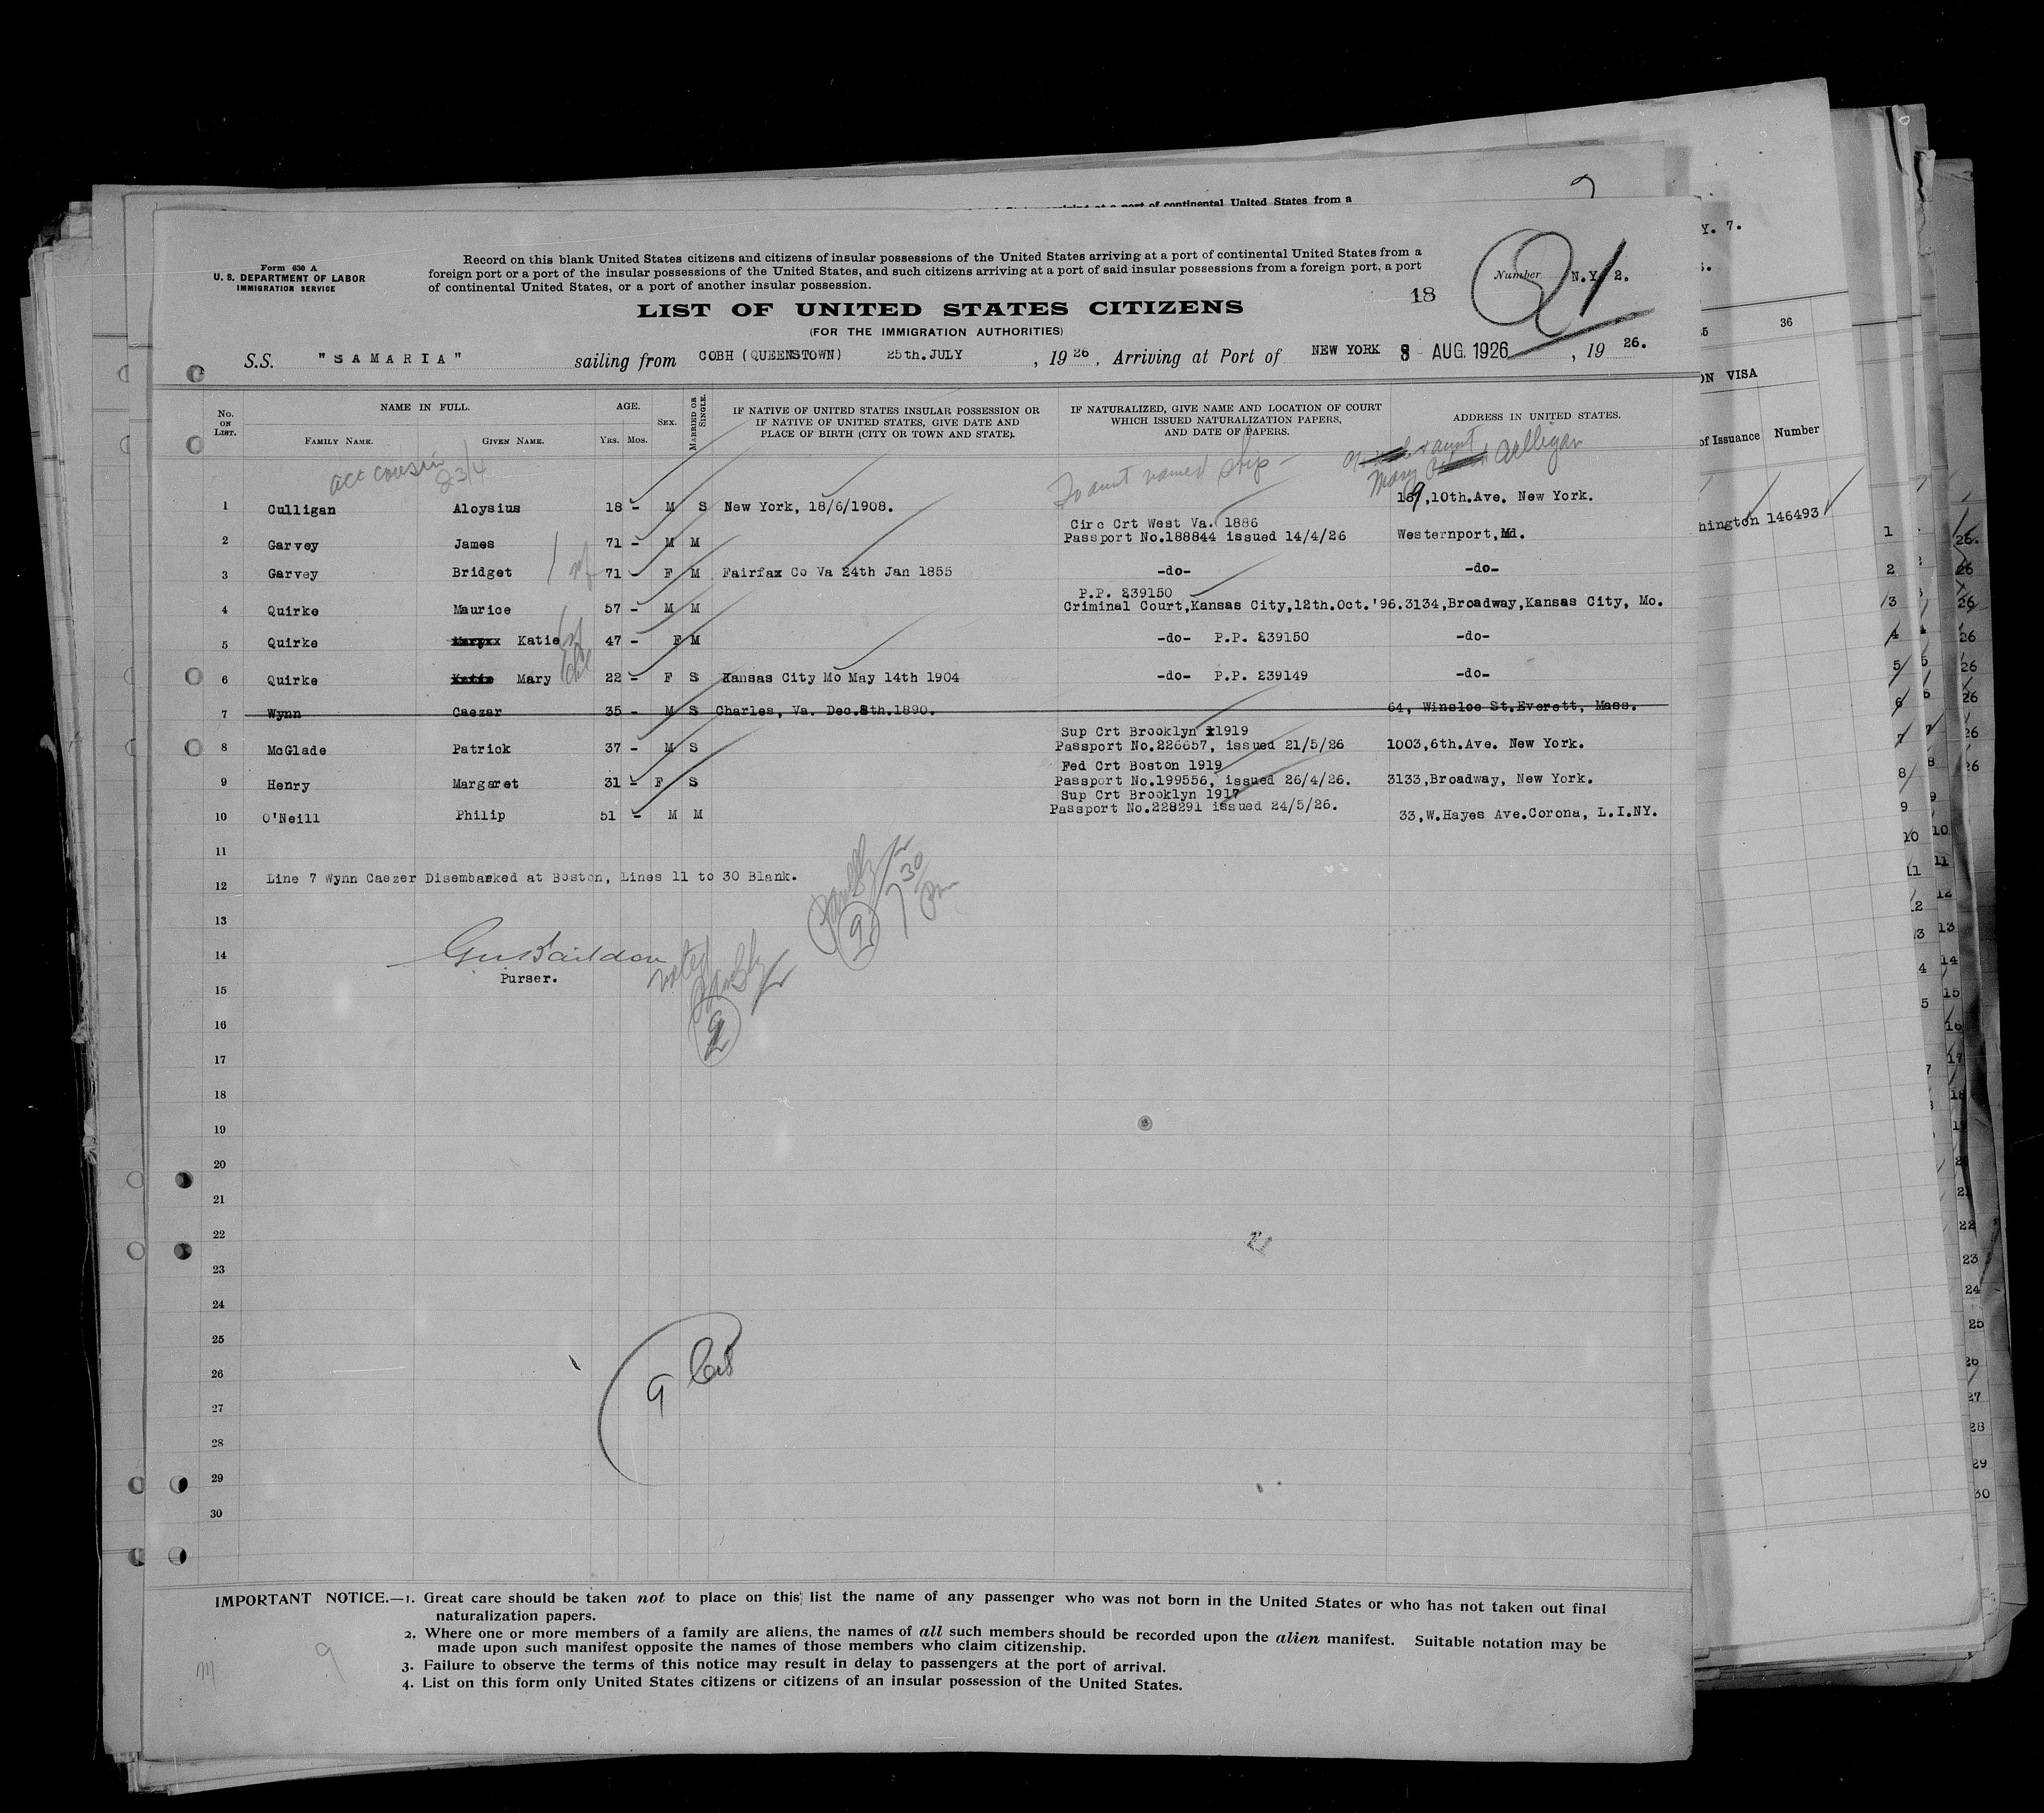 at a port of continental United States from a
9
Y. 7.
Form 630 A
U. S. DEPARTMENT OF LABOR
IMMIGRATION SERVICE
Record on this blank United States citizens and citizens of insular possessions of the United States arriving at a port of continental United States from a
foreign port or a port of the insular possessions of the United States, and such citizens arriving at a port of said insular possessions from a foreign port, a port
of continental United States, or a port of another insular possession.
Number N.Y. 2.
18
LIST OF UNITED STATES CITIZENS
(FOR THE IMMIGRATION AUTHORITIES)
S.S. "SAMARIA" sailing from COBH (QUEENSTOWN) 25th.JULY , 1926 , Arriving at Port of NEW YORK 8 AUG. 1926 , 19 26.
No. ON LIST. NAME IN FULL. FAMILY NAME. GIVEN NAME. AGE. YRS. MOS. SEX. MARRIED OR SINGLE. IF NATIVE OF UNITED STATES INSULAR POSSESSION OR IF NATIVE OF UNITED STATES, GIVE DATE AND PLACE OF BIRTH (CITY OR TOWN AND STATE). IF NATURALIZED, GIVE NAME AND LOCATION OF COURT WHICH ISSUED NATURALIZATION PAPERS, AND DATE OF PAPERS. ADDRESS IN UNITED STATES.
acc cousin 23/4 To aunt named ship - aunt Mary Culligan
1 Culligan Aloysius 18 - M S New York, 18/6/1908. 189,10th.Ave. New York.
Circ Crt West Va. 1886
2 Garvey James 71 - M M Passport No.188844 issued 14/4/26 Westernport,Md.
3 Garvey Bridget 71 - F M Fairfax Co Va 24th Jan 1855 -do- -do-
P.P. 239150
4 Quirke Maurice 57 - M M Criminal Court,Kansas City,12th.Oct.'96. 3134,Broadway,Kansas City, Mo.
5 Quirke Katie 47 - F M -do- P.P. 239150 -do-
6 Quirke Katie Mary 22 - F S Kansas City Mo May 14th 1904 -do- P.P. 239149 -do-
7 Wynn Caezar 35 - M S Charles, Va. Dec.8th.1890. 64, Winsloe St.Everett, Mass.
Sup Crt Brooklyn 1919
8 McGlade Patrick 37 - M S Passport No.226657, issued 21/5/26 1003,6th.Ave. New York.
Fed Crt Boston 1919
9 Henry Margaret 31 - F S Passport No.199556, issued 26/4/26. 3133,Broadway, New York.
Sup Crt Brooklyn 1917
10 O'Neill Philip 51 - M M Passport No.228291 issued 24/5/26. 33,W.Hayes Ave.Corona, L.I.NY.
11
12 Line 7 Wynn Caezer Disembarked at Boston, Lines 11 to 30 Blank.
9 7 30 pm
13
14
Purser.
15
16
17
18
19
20
21
22
23
24
25
26
9
27
28
29
30
IMPORTANT NOTICE.—1. Great care should be taken not to place on this list the name of any passenger who was not born in the United States or who has not taken out final
naturalization papers.
2. Where one or more members of a family are aliens, the names of all such members should be recorded upon the alien manifest. Suitable notation may be
made upon such manifest opposite the names of those members who claim citizenship.
3. Failure to observe the terms of this notice may result in delay to passengers at the port of arrival.
4. List on this form only United States citizens or citizens of an insular possession of the United States.
m 9
36
ON VISA
of Issuance Number
hington 146493